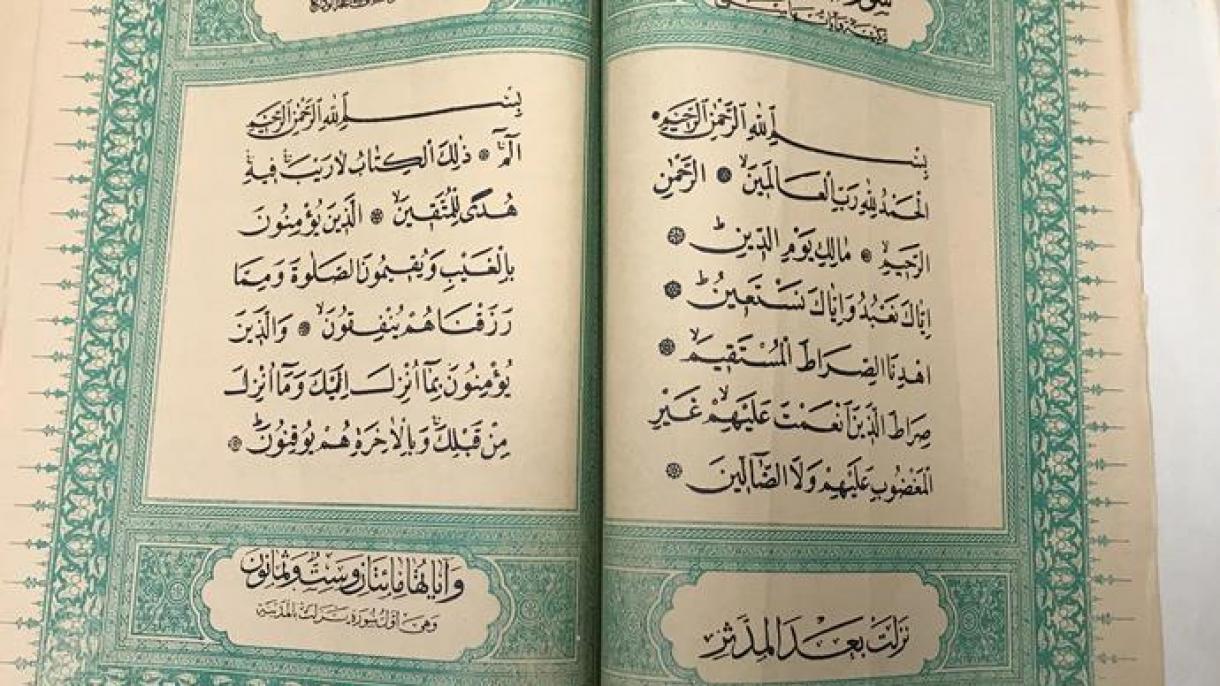 بِسْــــمِ اللّٰهِ الرَّحْمٰنِ الرَّحِيمِ
اَلْحَمْدُ لِلّٰهِ رَبِّ الْعَالَمِينَۙ ۞ اَلرَّحْمٰنِ
الرَّحِيمِۙ ۞ مَالِكِ يَوْمِ الدِّينِۜ ۞
اِيَّاكَ نَعْبُدُ وَاِيَّاكَ نَسْتَعِينُۜ ۞
اِهْدِنَا الصِّرَاطَ الْمُسْتَقِيمَۙ ۞
صِرَاطَ الَّذِينَ اَنْعَمْتَ عَلَيْهِمْۙ غَيْرِ
الْمَغْضُوبِ عَلَيْهِمْ وَلَا الضَّٓالِّينَ ۞
نزلت بعد المدثر
بِسْــــمِ اللّٰهِ الرَّحْمٰنِ الرَّحِيمِ
الٓمٓۚ ۞ ذٰلِكَ الْكِتَابُ لَا رَيْبَۚۛ فِيهِۚۛ
هُدًى لِلْمُتَّقِينَۙ ۞ اَلَّذِينَ يُؤْمِنُونَ
بِالْغَيْبِ وَيُقِيمُونَ الصَّلٰوةَ وَمِمَّا
رَزَقْنَاهُمْ يُنْفِقُونَۙ ۞ وَالَّذِينَ
يُؤْمِنُونَ بِمَٓا اُنْزِلَ اِلَيْكَ وَمَٓا اُنْزِلَ
مِنْ قَبْلِكَۚ وَبِالْاٰخِرَةِ هُمْ يُوقِنُونَۜ ۞
وآياتها مائتان وست وثمانون
وهي اول سورة نزلت بالمدينة